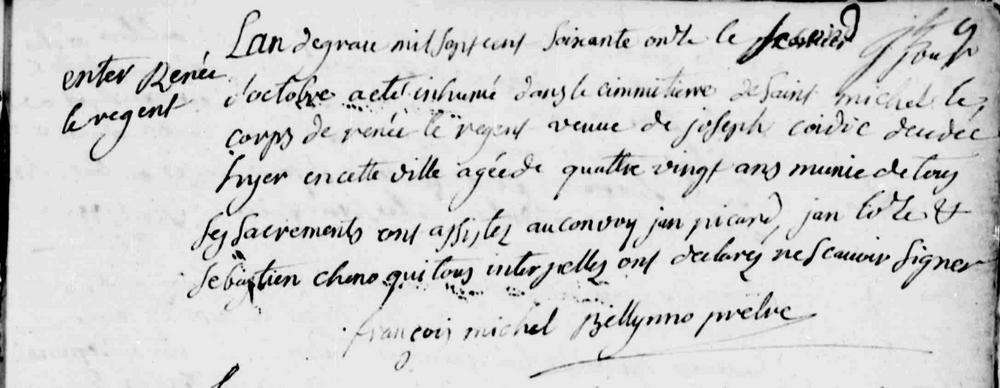 enter Renée
le regent
Lan degrace mil sept cent soixante onze le premier jour
d'octobre a eté inhumé dans le cimmetierre de Saint michel le
corps de renée le regent veuve de joseph coidic decedee
hyer en cette ville agée de quattre vingt ans munie de tous
ses sacrements ont assistez au convoy jan picard, jan &
Sebastien cheno qui tous interpellez ont declarez ne scavoir signer
françois michel Bellynno pretre